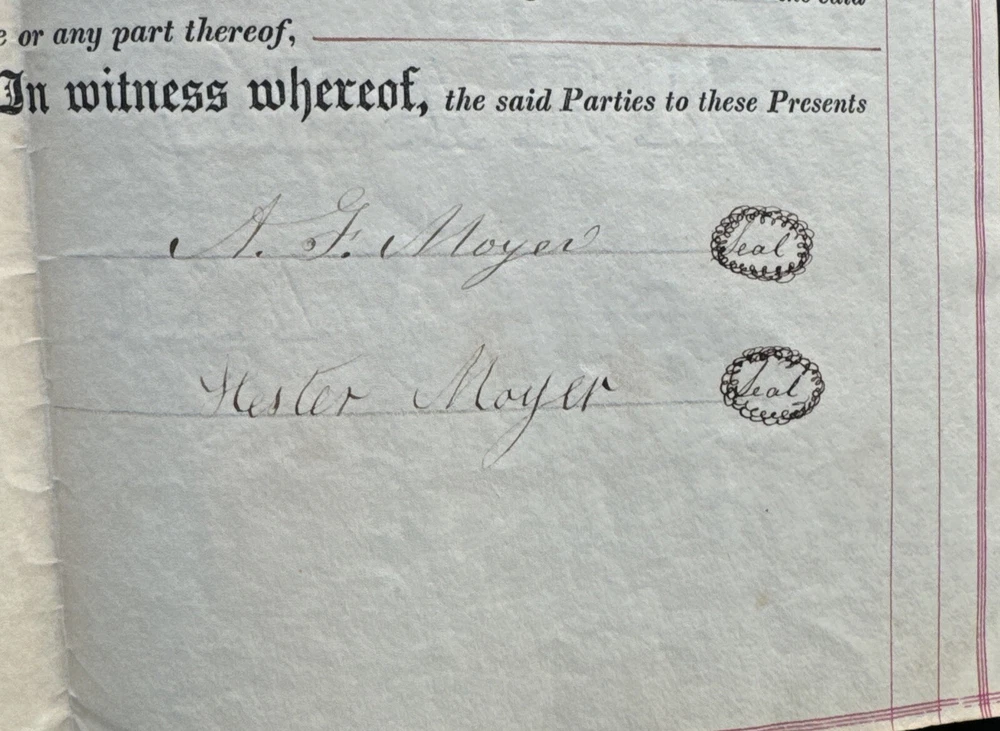 the said
e or any part thereof,
In witness whereof, the said Parties to these Presents
A. F. Moyer Seal
Hester Moyer Seal